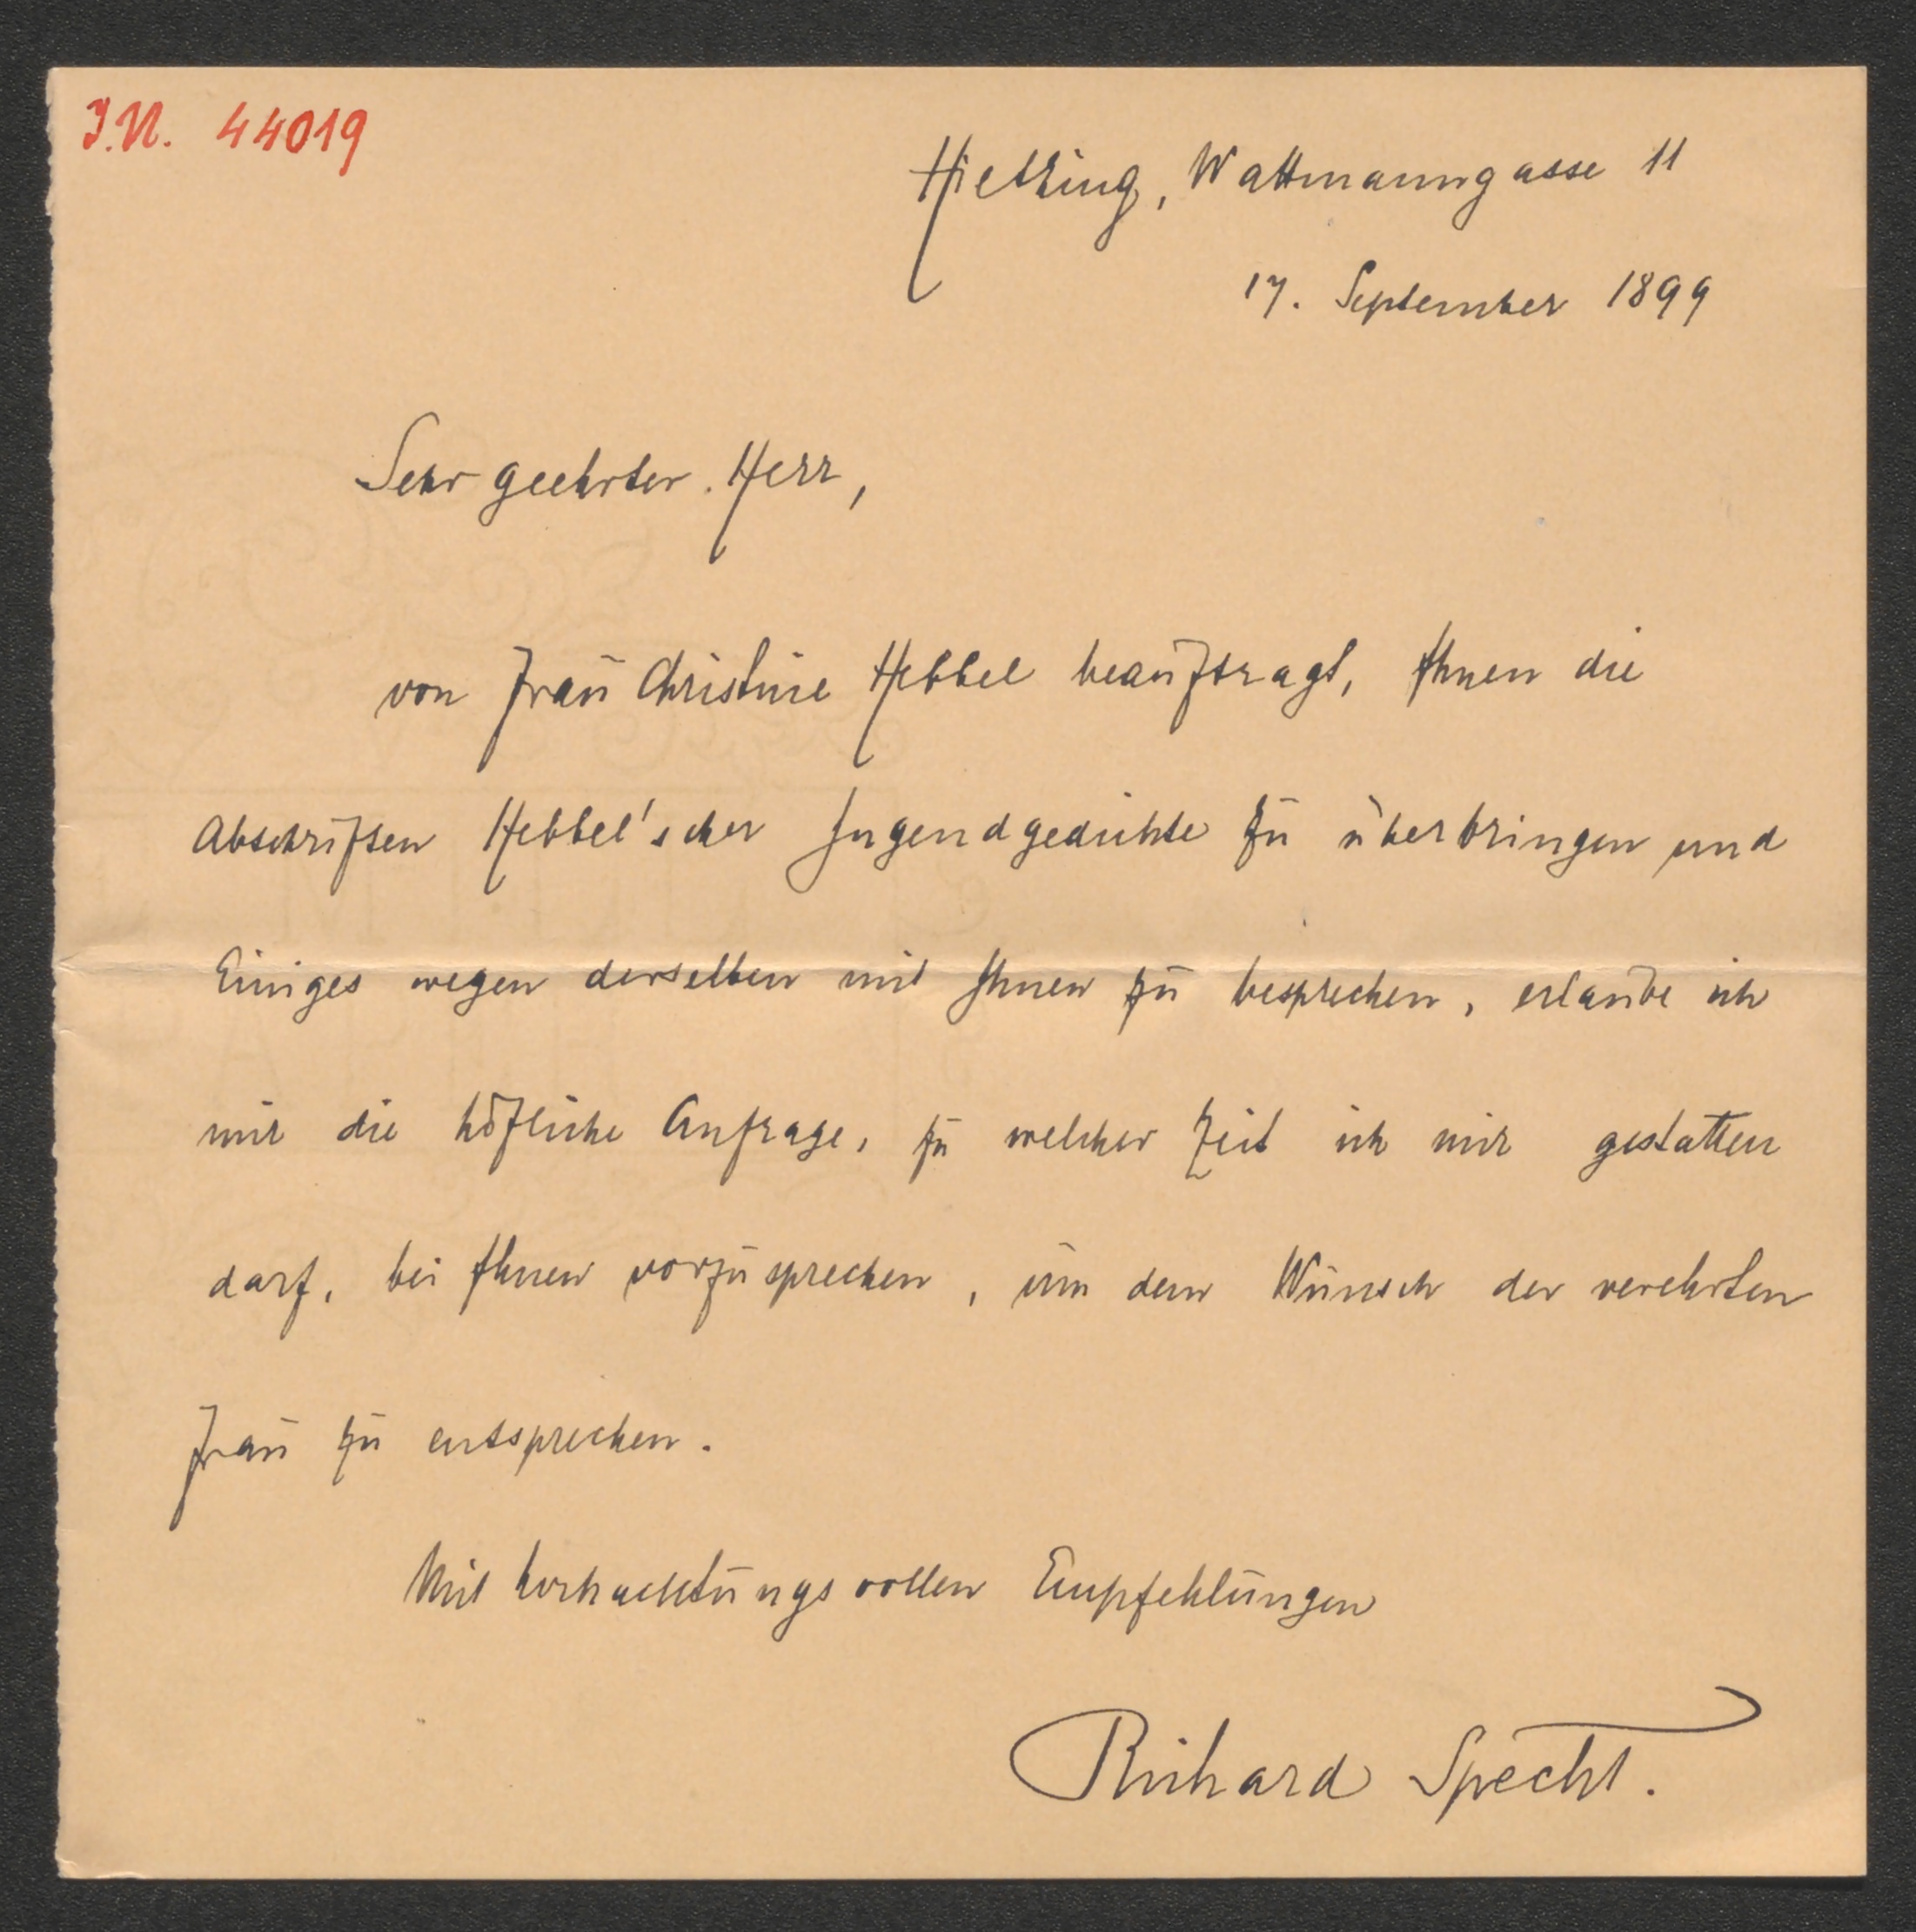 I.N. 44019
Hietzing, Wattmanngasse 11
17. September 1899
Sehr geehrter Herr,
von Frau Christine Hebbel beauftragt, Ihnen die
Abschriften Hebbel'scher Jugendgedichte zu überbringen und
Einiges wegen derselben mit Ihnen zu besprechen, erlaube ich
mir die höfliche Anfrage, zu welcher Zeit ich mir gestatten
darf, bei Ihnen vorzusprechen, um dem Wunsch der verehrten
Frau zu entsprechen.
Mit hochachtungsvollen Empfehlungen
Richard Specht.